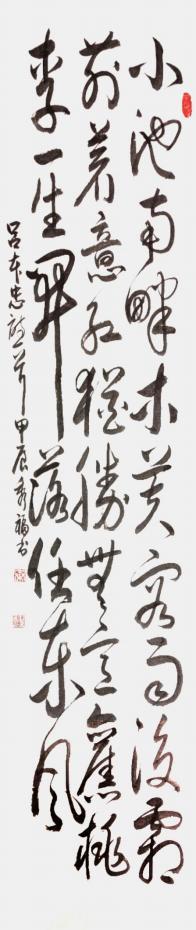 小池南畔木芙容雨後霜
前着意紅猶勝無言舊桃
李一生開落任東風
呂本忠詩一首甲辰秀福書